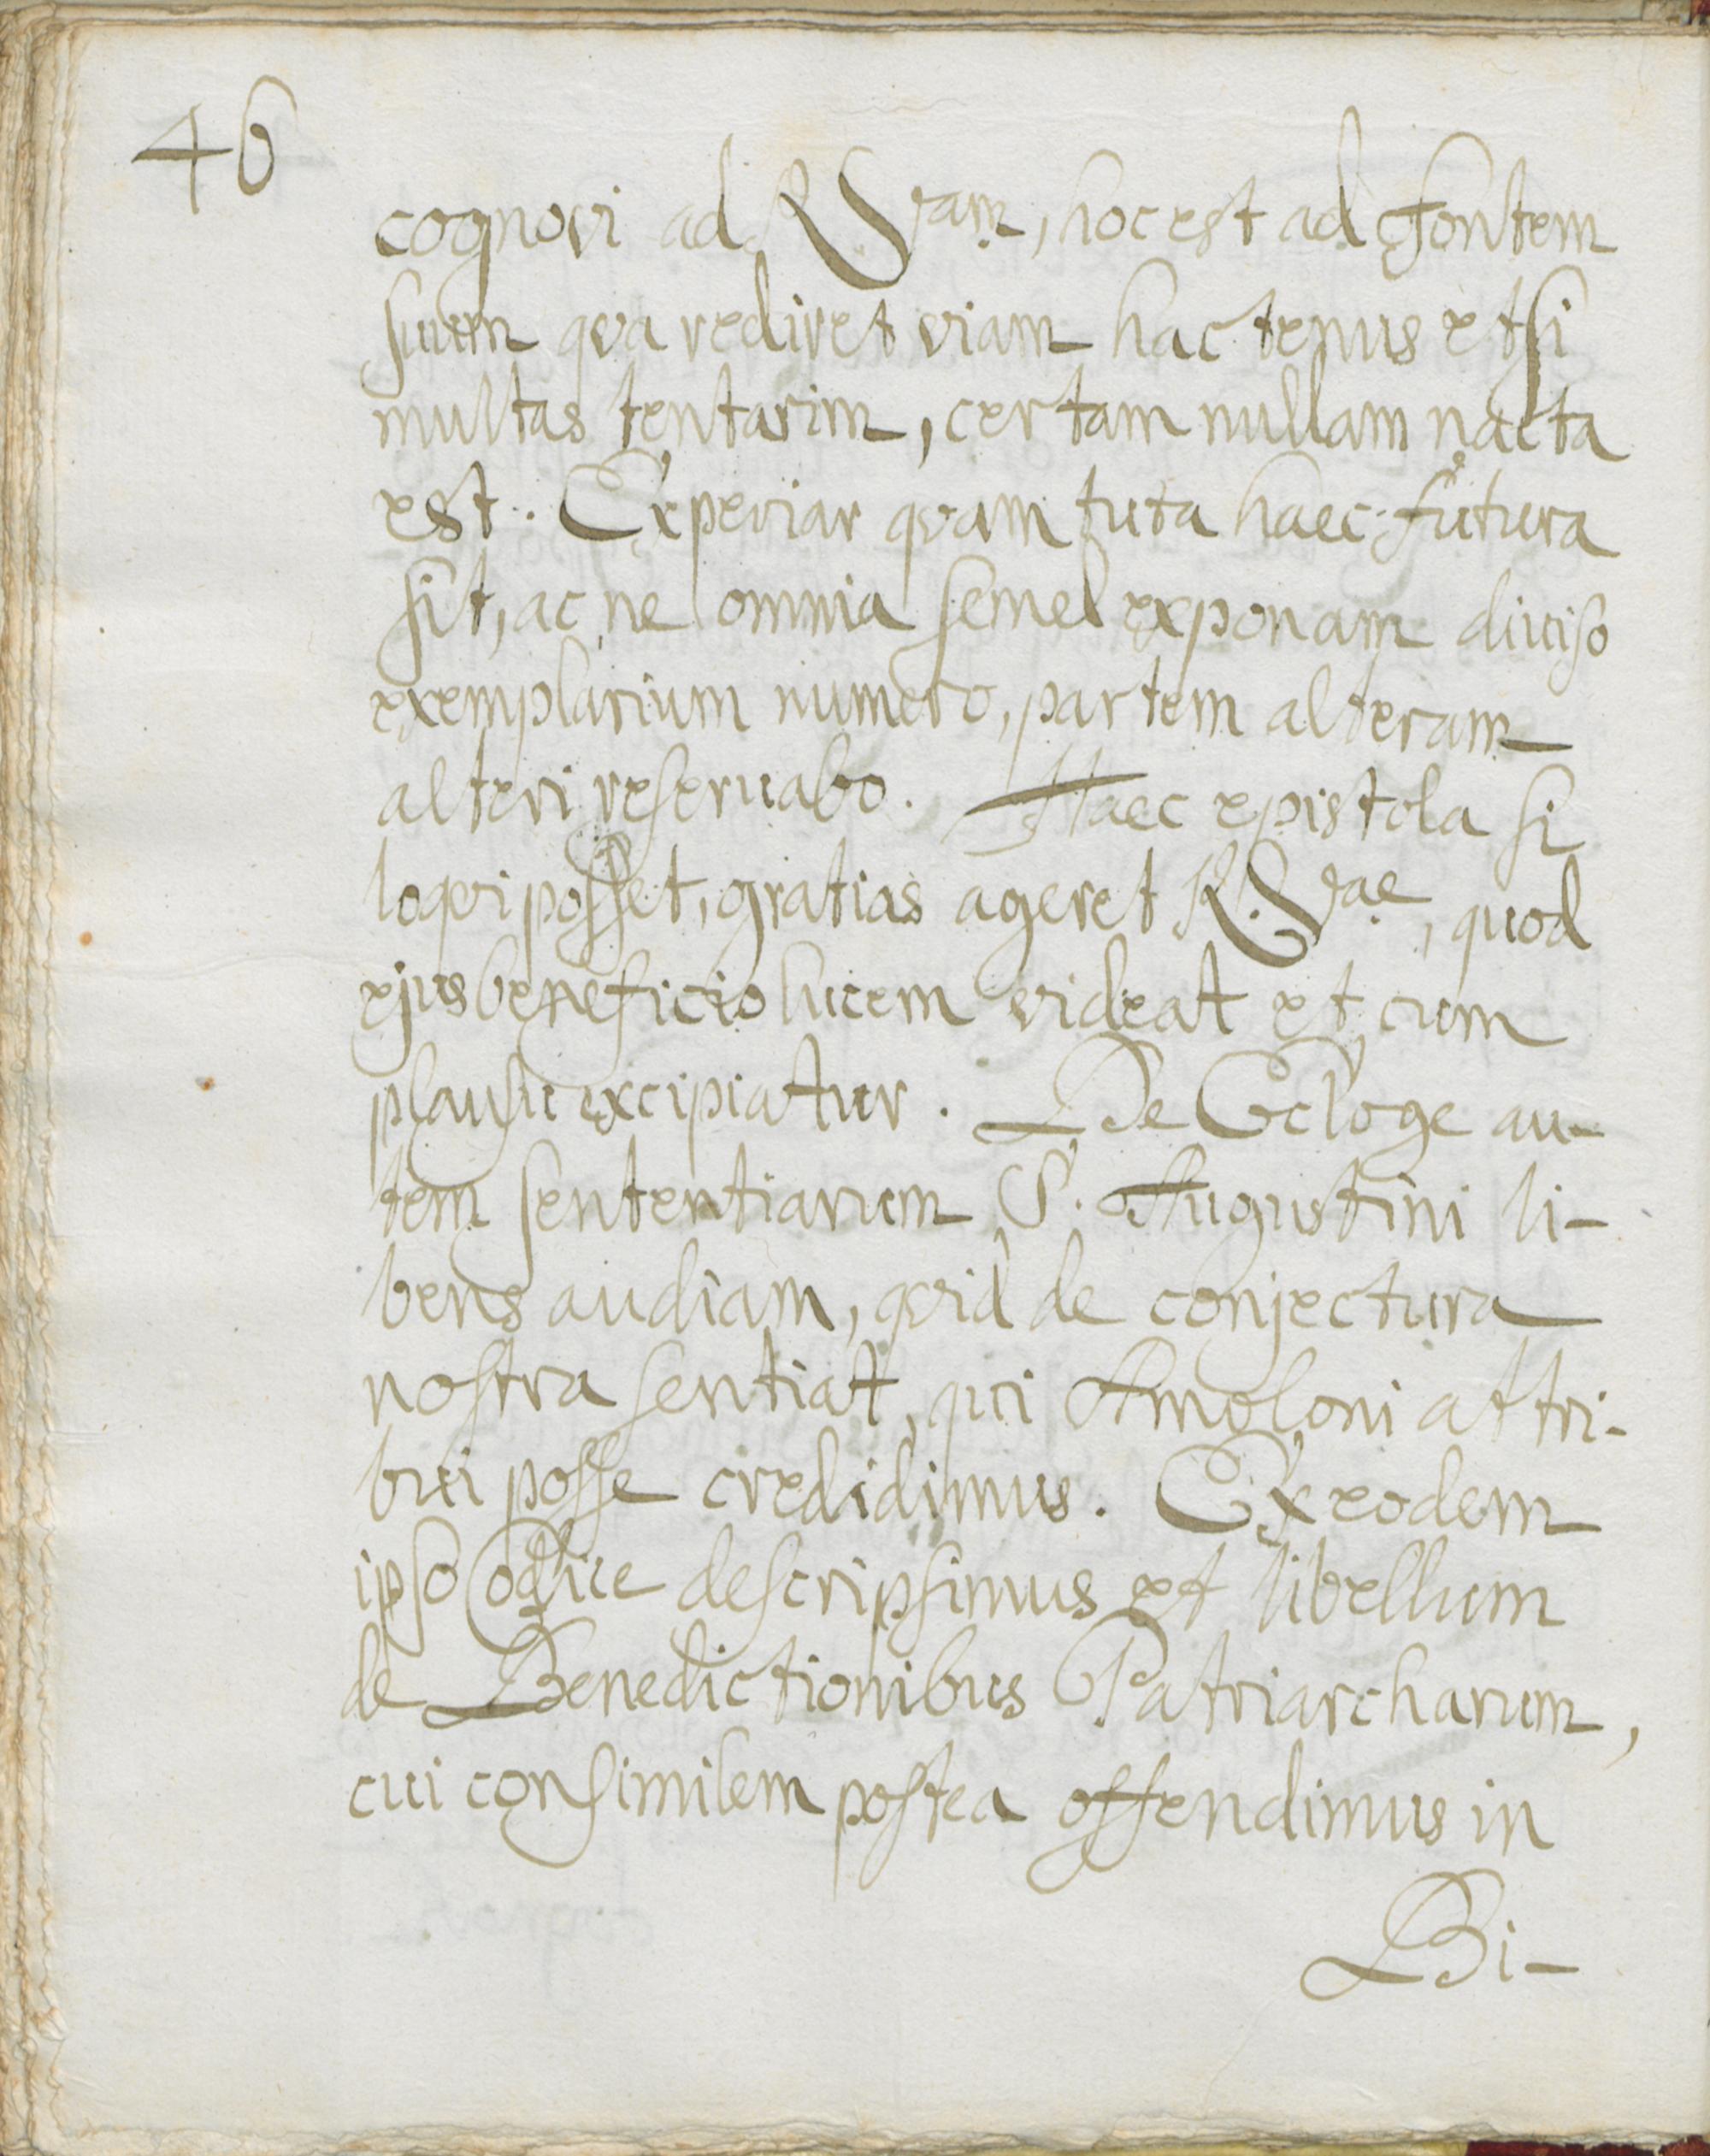 46
cognovi ad R. Vram, hoc est ad fontem
suum qva rediret viam hactenus etsi
multas tentarim, certam nullam nacta
est. Experiar qvam tuta haec futura
sit, ac ne omnia semel exponam diuiso
exemplarium numero, partem alteram
alteri reseruabo. Haec epistola si
loqvi posset, gratias ageret R. Vrae, quod
ejus beneficio lucem videat et cum
plausu excipiatur. De Ecloge au-
tem sententiarum S. Augustini li-
bens audiam, qvid de conjectura
nostra sentiat, qui Amoloni attri-
bui posse credidimus. Ex eodem
ipso Codice descripsimus et libellum
de Benedictionibus Patriarcharum,
cui consimilem postea offendimus in
Bi-